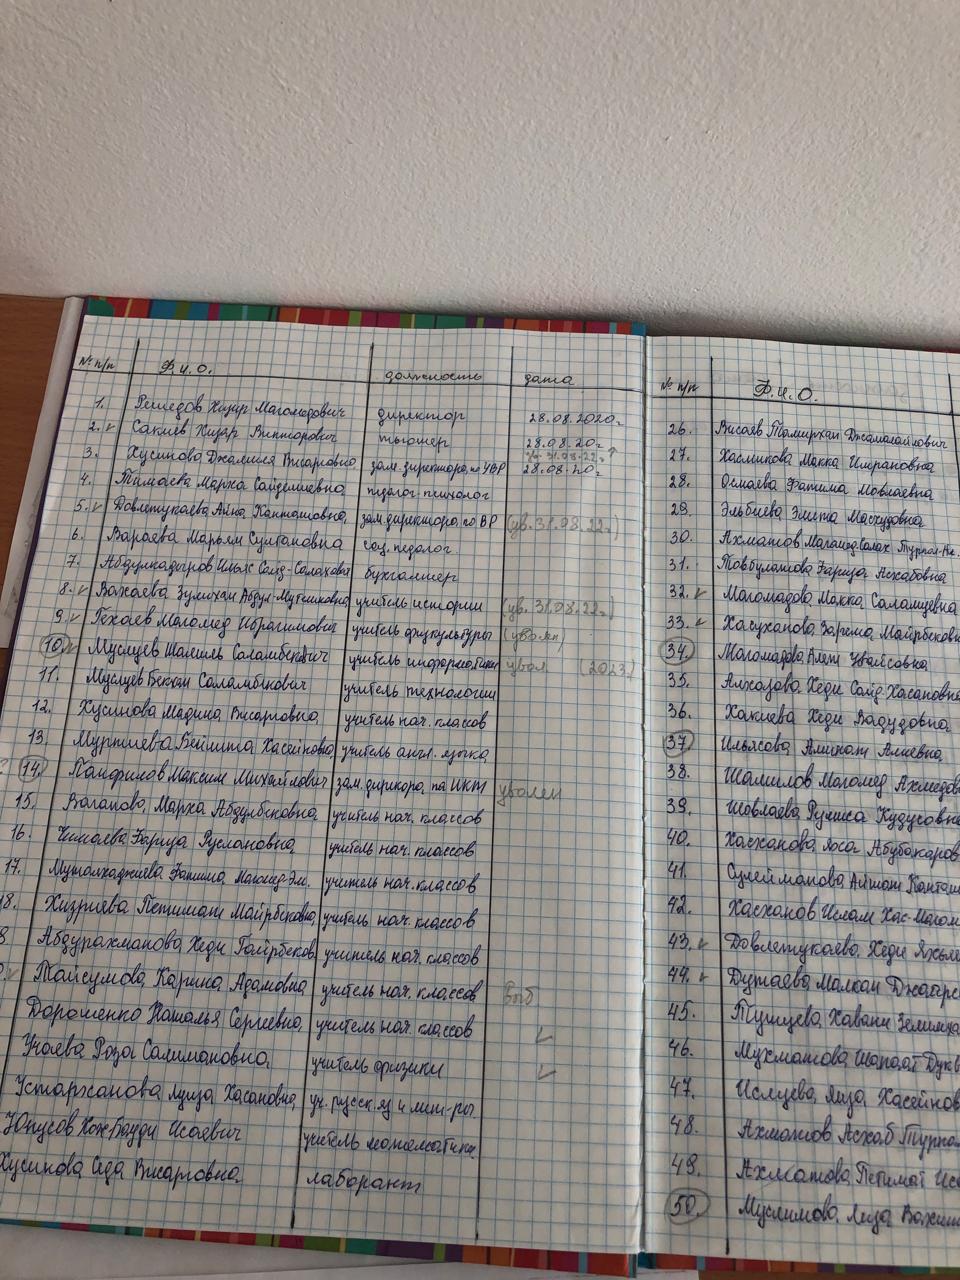 № п/п Ф.и.о. должность дата
1. Решедов Хизир Магомедович директор 28.08.2020г
2. Сакиев Хизир Викторович тьютер 28.08.20г
ув. 31.08.22г
3. Хусинова Джамиля Висартовна зам. директора по УВР 28.08.20г
4. Тимаева Марха Сайдселиевна педагог-психолог
5. Довлетукаева Айна Канташовна зам. директора по ВР (ув. 31.08.22г)
6. Вараева Марьям Султановна соц. педагог
7. Абдулкадыров Ильяс Саид-Салахович бухгалтер
8. Вахаева Зулихан Абдул-Муталиковна учитель истории (ув. 31.08.22г.
9. Гехаев Магомед Ибрагимович учитель физкультуры (уволен)
10. Муслуев Шамиль Саламбекович учитель информатики увол (2023)
11. Муслуев Бекхан Саламбекович учитель технологии
12. Хусинова Мадина Висартовна учитель нач. классов
13. Муртиева Хасейновна учитель англ. языка
14. Панфилов Максим Михайлович зам. дирикора по ИКТ уволен
15. Ваганова Марха Абдулбековна учитель нач. классов
16. Чимаева Фариза Руслановна учитель нач. классов
17. Муталхаджиева Фатима Магомед-Эм. учитель нач. классов
18. Хизриева Петимат Майрбековна учитель нач. классов
Абдурахманова Хеди Гайрбеков учитель нач. классов
Тайсумова Карина Адамовна учитель нач. классов Выб
Дорошенко Наталья Сергеевна учитель нач. классов
Учаева Роза Салимановна учитель физики
Устарханова Луиза Хасановна уч. русск. яз и лит-ры
Юнусов Хож-Бауди Исаевич учитель математики
Хусинова Седа Висартовна лаборант
№ п/п Ф.и.о.
26. Висаев Тамирхан Джамалайлович
27. Хасмикова Макка Имрановна
28. Осмаева Фатима Мовлаевна
29. Эльбиева Элита Масхудовна
30. Ахматов Магомед-Салах
31. Товбулатова Фариза Асхабовна
32. Магомадова Макка Саламуевна
33. Хасуханова Зарема Майрбековн
34. Магомадова Увайсовна
35. Алхазова Хеди Саид-Хасановна
36. Хакиева Хеди Вадудовна
37. Ильясова Аминат Алиевна
38. Шамилов Магомед Ахмедов
39. Шовлаева Румиса Кудусовн
40. Хасханова Абубакаров
41. Сулейманова Айшат Канташ
42. Хасханов Ислам Хас-Магом
43. Довлетукаева Хеди
44. Дутаева Малкан
45. Тушуева Хавани Зелимха
46. Мухматова Шапаат
47. Ислуева Луиза Хасейнов
48. Ахматов Асхаб Турпал
49. Ахматова Петимат Иса
50. Муслимова Луиза Вахит